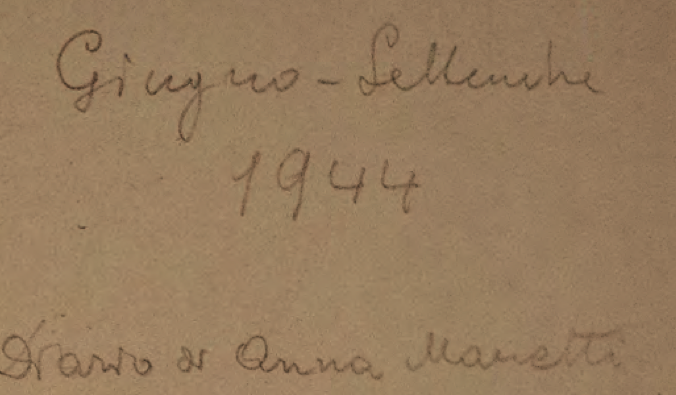 Giugno - Settembre
1944
Diario di Anna